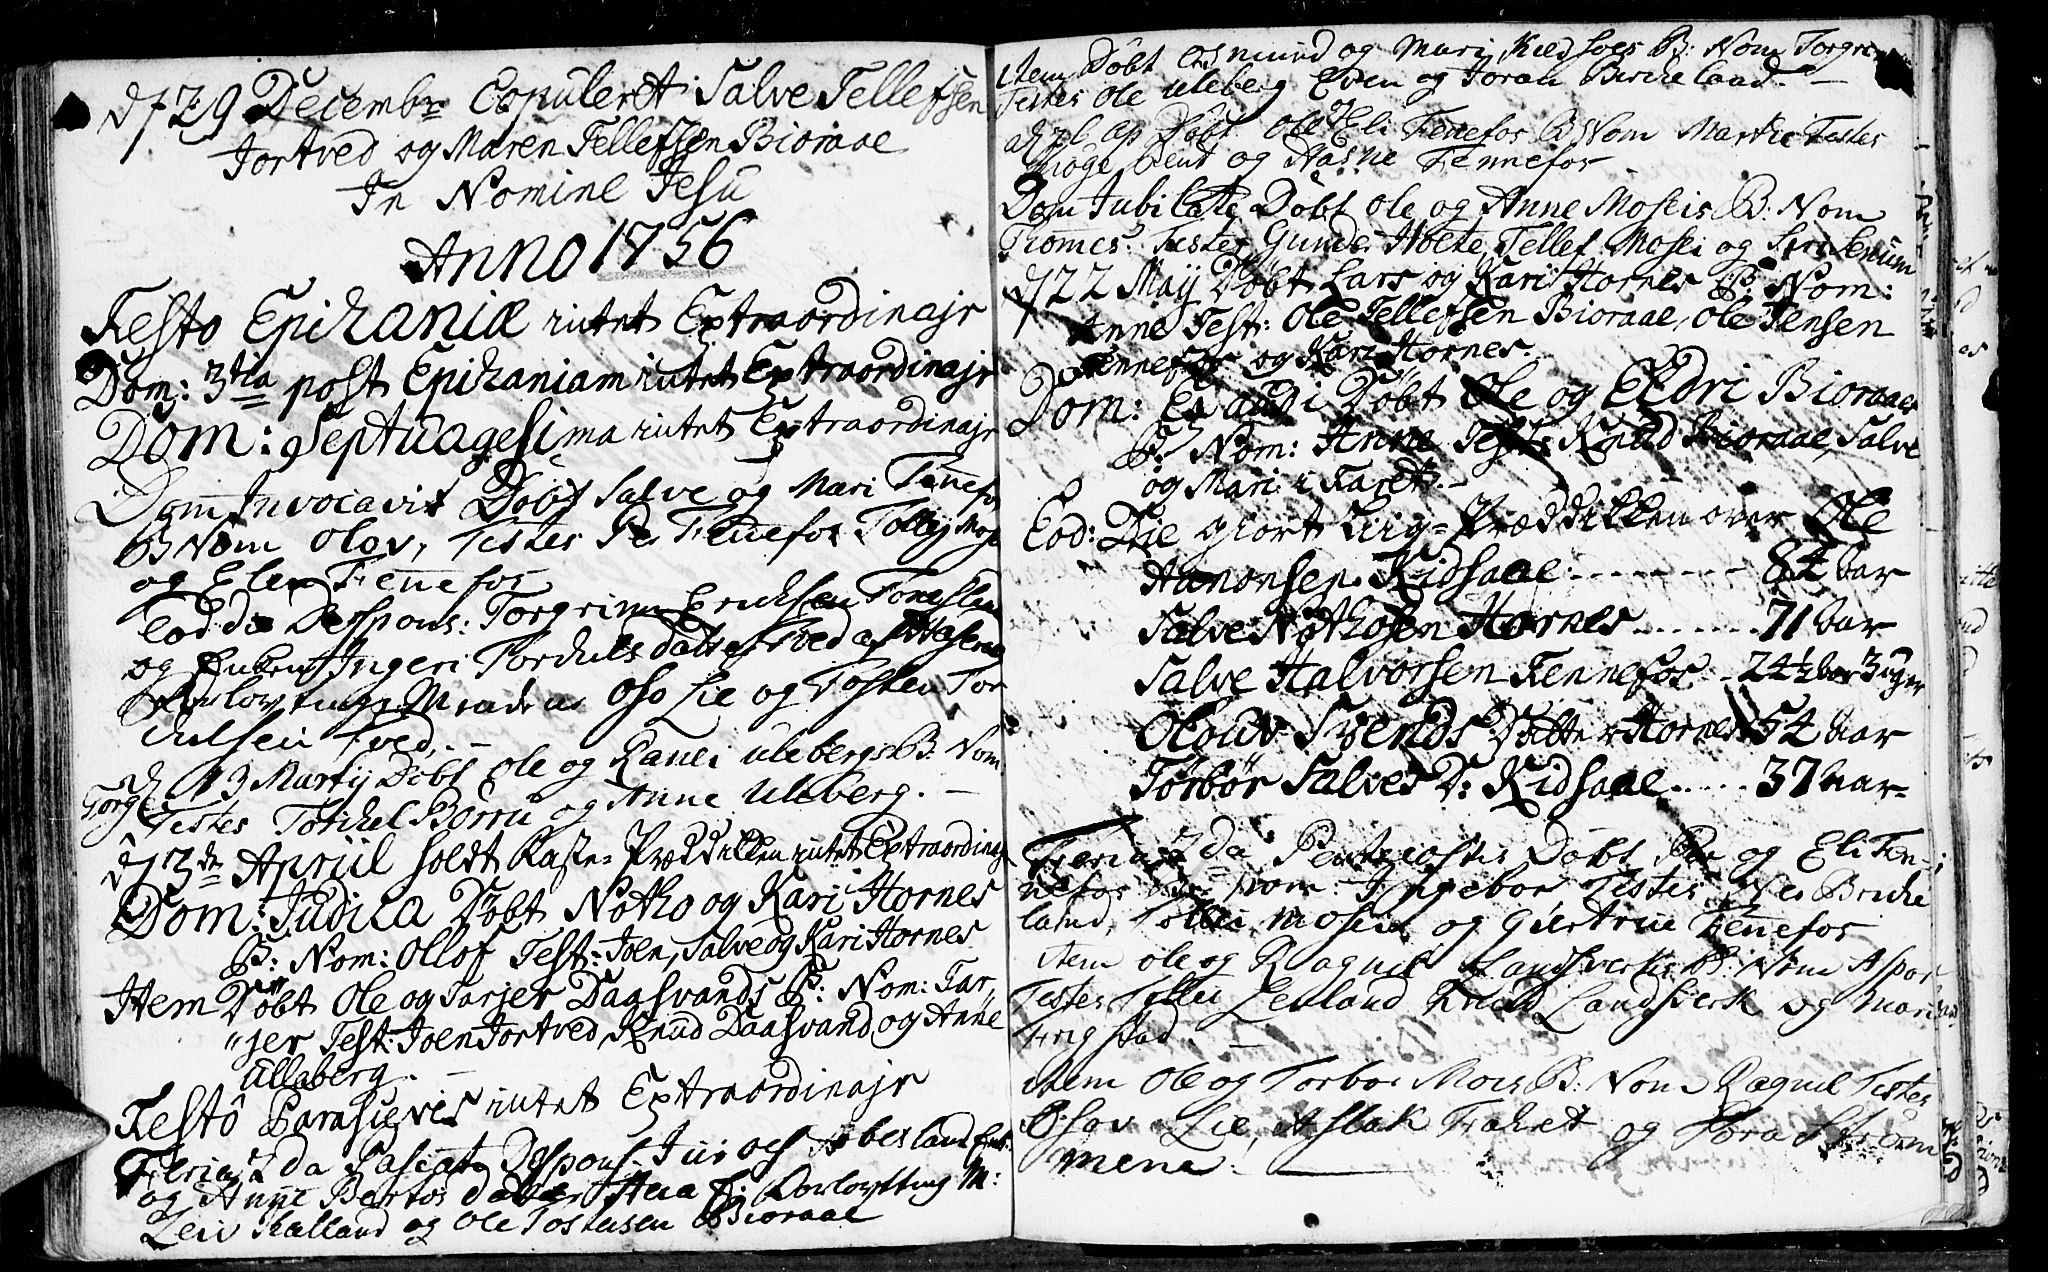 d 29 Decembr Copuleret Salve Tellefsen
Jortved og Maren Tellefsen Bioraae
In Nomine Jesu
Anno 1756
Festo Epihaniæ intet Extraordinajr
Dom: 3tia post Epihaniam intet Extraordinajr
Dom: Septuagesima intet Extraordinajr
Dom Invocavit Døbt Salve og Mari Fennefos
B Nom Olov, Testes Per Fennefos Tolly Mosei
og Elen Fennefos
Eod die Despons: Torgrim Eriksen
og Enken Ingeri Tordvels datter Tved af
Forlovtings Mænd er Oso Lie og Tosten Tor
dulsen Tved. -
d 13 Martij Døbt Ole og Ranei Ulebergs B: Nom
Torge Testes Torkel Borru og Anne Uleberg. -
d 3de Apriil holdt Faste-Præddikken intet Extraordinajr
Dom: Judica Døbt Notho og Kari Hornes
B: Nom: Ollof Test: Joen, Salve og Kari Hornes
Item Døbt Ole og Tarjer Daasvands B: Nom: Tar,
"jer Test: Joen Jortved, Knud Daasvand og Anne
Ullaberg. -
Festo Parasceves intet Extraordinajr
Feria 2da Pascat Despons.
og Anne Bertos datter Forlovtting M:
Leiv Haalland og Ole Tostensen Bioraae
Item Døbt Osmund og Mari B: Nom Torgrim
Testes Ole Uleberg Even og Joran Birkeland. -
Døbt Ole Eli Fennefos B Nom Marthe Testes
og Aasne Fennefos
Dom Jubilate Døbt Ole og Anne Moseis B: Nom
Thomes. Testes Gunder Holte, Tellef Mosei og
d 22 Maij Døbt Lars og Kari Hornes B: Nom:
Anne Test: Ole Tellefsen Bioraae, Ole Jensen
Fennefos og Kari Hornes.
Dom: Exaudi Døbt Ole og Eldri Bioraaes
B: Nom: Anne Test: Knud Bioraae, Salve
og Mari i Faret. -
Eod: Die giort Liig-Præddikken over Ole
Aanonsen Kidsaae: - - - - - 84 Aar
Salve Nothosen Hornes - - - - 71 Aar
Salve Halvorsen Fennefos - - 24½ Aar 3 uger
Olouv Svends Datter Hornes 54 Aar
Torbor Salves D: Kidsaae - - - 37 Aar -
Feria 2da Pentecostes Døbt Per og Eli Fen-
nefos B: Nom: Ingebor Testes Birke
land, Tollei Mosei og Giertrue Fennefos
Item Ole og Ragnil Landsverks B: Nom Aspor,
Testes Tellev Leuland Knud Landsverk og Mari
Frigstad. -
Item Ole og Torbor Mois B: Nom Ragnil Testes
Osov Lie, Aslak Fahret og Tora Strøm
mene.